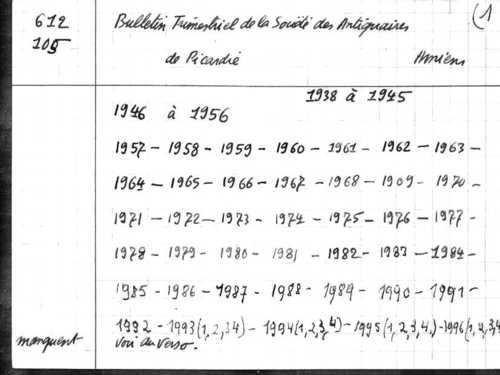 612 Bulletin Trimestriel de la Société des Antiquaires (1
105 de Picardie Amiens
1938 à 1945
1946 à 1956
1957 - 1958 - 1959 - 1960 - 1961 - 1962 - 1963 -
1964 - 1965 - 1966 - 1967 - 1968 - 1909 - 1970 -
1971 - 1972 - 1973 - 1974 - 1975 - 1976 - 1977 -
1978 - 1979 - 1980 - 1981 - 1982 - 1983 - 1984 -
1985 - 1986 - 1987 - 1988 - 1989 - 1990 - 1991 -
1992 - 1993 (1, 2, 34) - 1994 (1, 2, 3, 4) - 1995 (1, 2, 3, 4.) - 1996 (1, 2, 3, 4
manquent voir au verso.